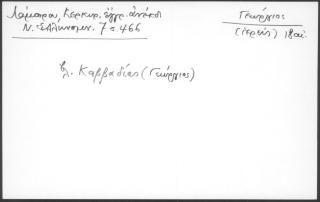 Λάμπρου, Κερκυρ. ἔγγρ. ἀνέκδ.
Ν. Ἑλληνομν. 7 σ. 466
Γεώργιος
(ἱερεύς) 18 αἰ.
βλ. Καββαδίας (Γεώργιος)